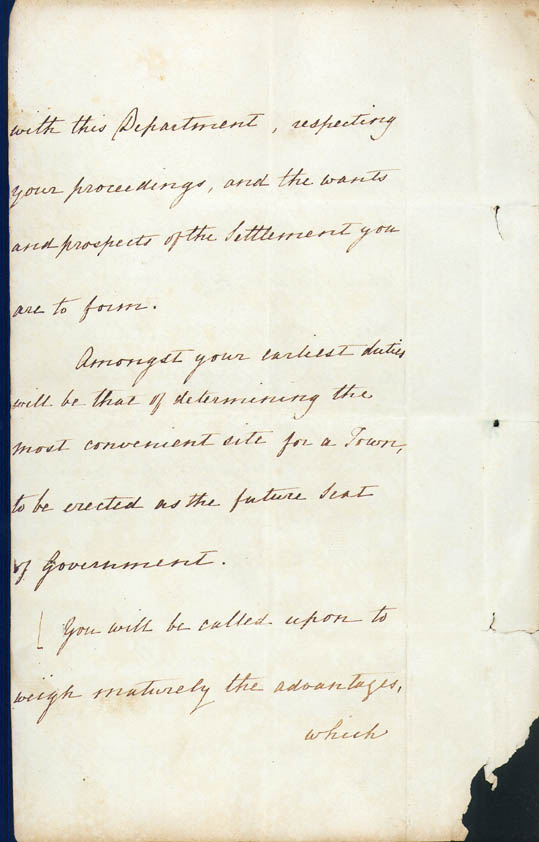 with this Department, respecting
your proceedings, and the wants
and prospects of the Settlement you
are to form.
Amongst your earliest duties
will be that of determining the
most convenient site for a Town,
to be erected as the future Seat
of Government.
[ You will be called upon to
weigh maturely the advantages,
which